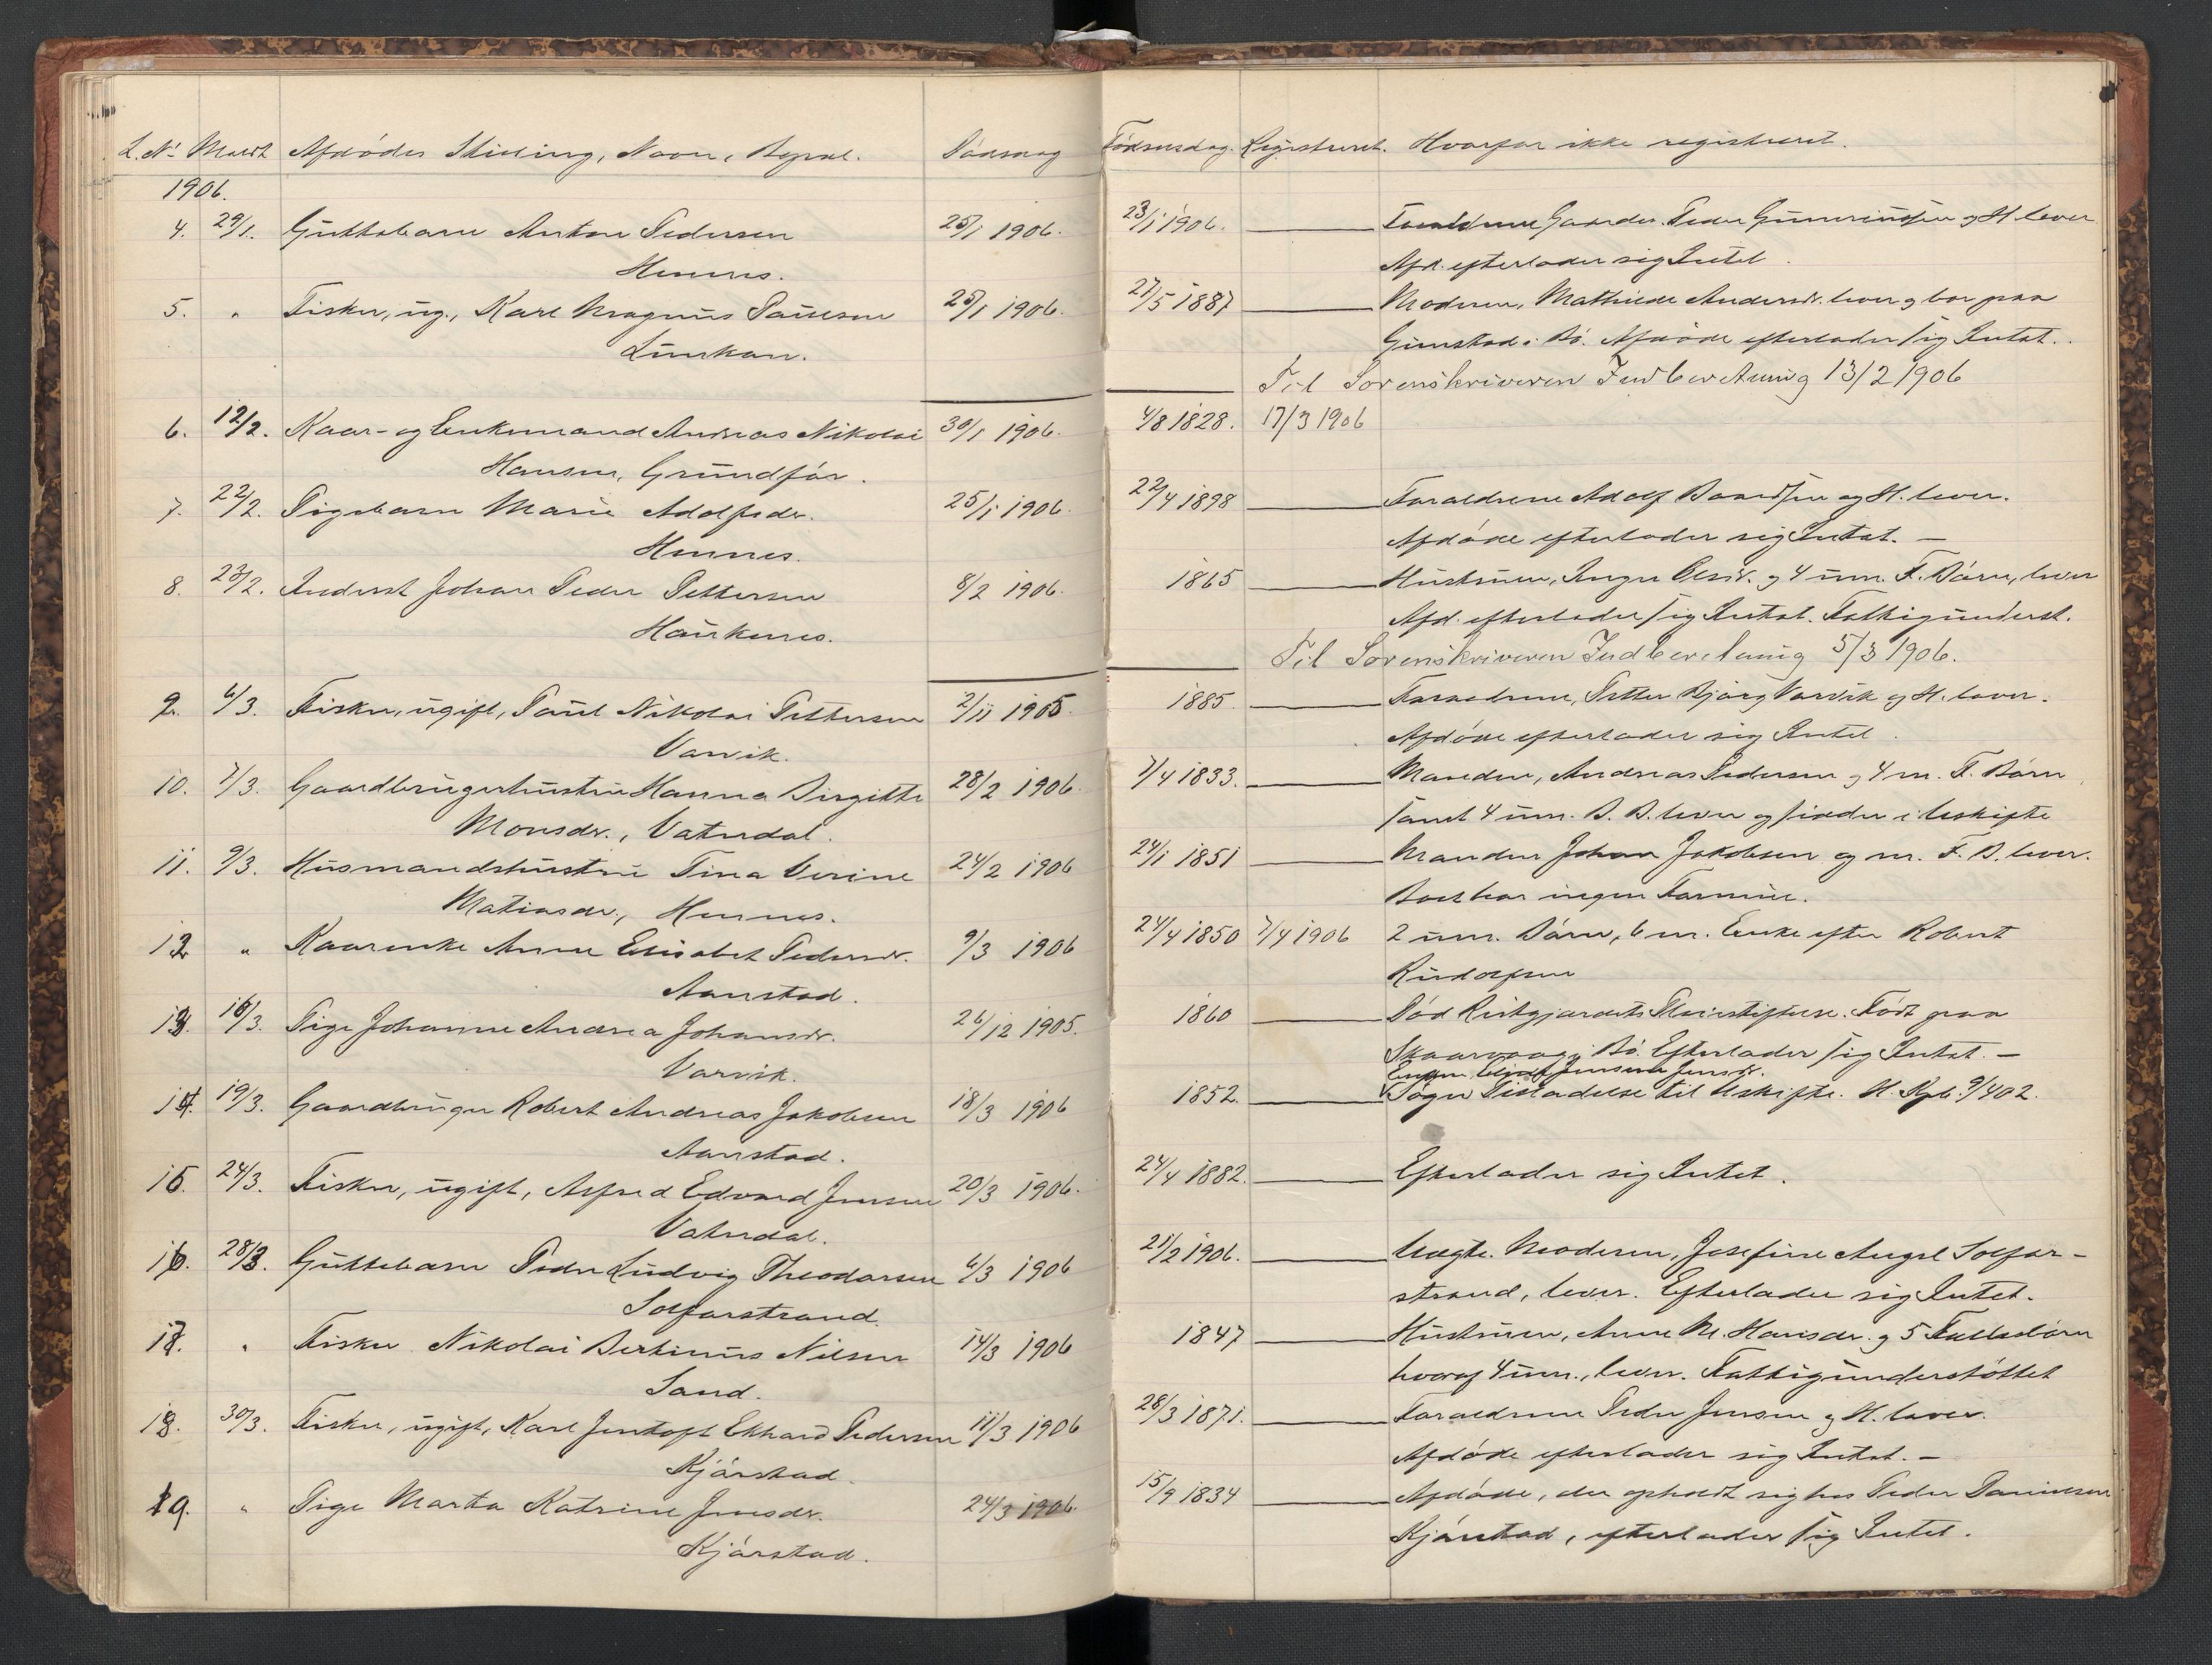 L. Nº Meldt Afdødes Stilling, Navn, Bopæl. Dødsdag
1906.
4. 29/1. Guttebarn Anton Pedersen 25/1 1906.
Hennes.
5. " Fisker, ug., Karl Magnus Paulsen 25/1 1906.
Lunkan.
6. 12/2. Kaar- og Enkemand Andreas Nikolai 30/1 1906.
Hansen, Grundfør.
7. 22/2. Pigebarn Marie Adolfsdr. 25/1 1906.
Hennes.
8. 23/2. Inderst Johan Peder Pettersen 8/2 1906.
Haukenes.
9. 6/3. Fisker, ugift, Paul Nikolai Pettersen 2/11 1905.
Varvik.
10. 7/3. Gaardbrugerhustru Hanna Birgitte 28/2 1906.
Monsdr., Vatndal.
11. 9/3. Husmandshustru Tina Verine 24/2 1906
Matiasdr., Hennes.
12. " Kaarenke Anne Elisabet Pedersdr. 9/3 1906
Aanstad.
13. 16/3. Pige Johanne Andrea Johansdr. 26/12 1905.
Varvik.
14. 19/3. Gaardbruger Robert Andreas Jakobsen 18/3 1906
Aanstad.
15. 24/3. Fisker, ugift, Alfred Edvard Jensen 20/3 1906.
Vatndal.
16. 28/3. Guttebarn Peder Ludvig Theodorsen 6/3 1906
Solfarstrand.
17. " Fisker Nikolai Bertinus Nilsen 14/3 1906
Sand.
18. 30/3. Fisker, ugift, Karl Jentoft Ekhard Pedersen 11/3 1906
Kjørstad.
19. " Pige Marta Katrine Jensdr. 24/3 1906.
Kjørstad.
Fødselsdag. Registreret. Hvorfor ikke registreret.
23/1 1906. Forældrene Gaardbr. Peder Gunnriusen og H. lever
Afd. efterlader sig Intet.
27/5 1887 Moderen, Mathilde Andersdr. lever og bor paa
Gimstad i Bø. Afdøde efterlader sig Intet.
Til Sorenskriveren Indberetning 13/2 1906
4/8 1828. 17/3 1906
22/4 1898 Forældrene Adolf Baardsen og H. lever.
Afdøde efterlader sig Intet. —
1865 Hustruen, Inger Olsdr. og 4 um. F. Børn, lever
Afd. efterlader sig Intet. Fattigunderst.
Til Sorenskriveren Indberetning 5/3 1906.
1885. Forældrene, Petter Bjørg Varvik og H. lever.
Afdøde efterlader sig Intet.
7/4 1833. Manden, Andreas Pedersen og 4 m. F. Børn
samt 4 um. B. B. lever og sidder i Uskifte
24/1 1851 Manden Johan Jakobsen og m. F. B. lever.
Boet har ingen Formue.
24/4 1850 7/4 1906 2 um. Børn, 6 m. Enke efter Robert
Rudolfsen
1860 Død Rotvgjærdets Pleiestiftelse. Født paa
Skaarvaag i Bø. Efterlader sig Intet. —
Enken Jensine Jensdr.
1852. Søger Tilladelse til Uskifte. H. Kpb. 9/402.
24/4 1882. Efterlader sig Intet.
21/2 1906. Uægte. Moderen, Josefine Angel Solfar-
strand, lever. Efterlader sig Intet.
1847 Hustruen, Anne M. Hansdr. og 5 Fællesbørn
hvoraf 4 um., lever. Fattigunderstøttet
28/3 1871. Forældrene Peder Jensen og H. lever.
Afdøde efterlader sig Intet. —
15/9 1834 Afdøde, der opholdt sig hos Peder Danielsen
Kjørstad, efterlader sig Intet.